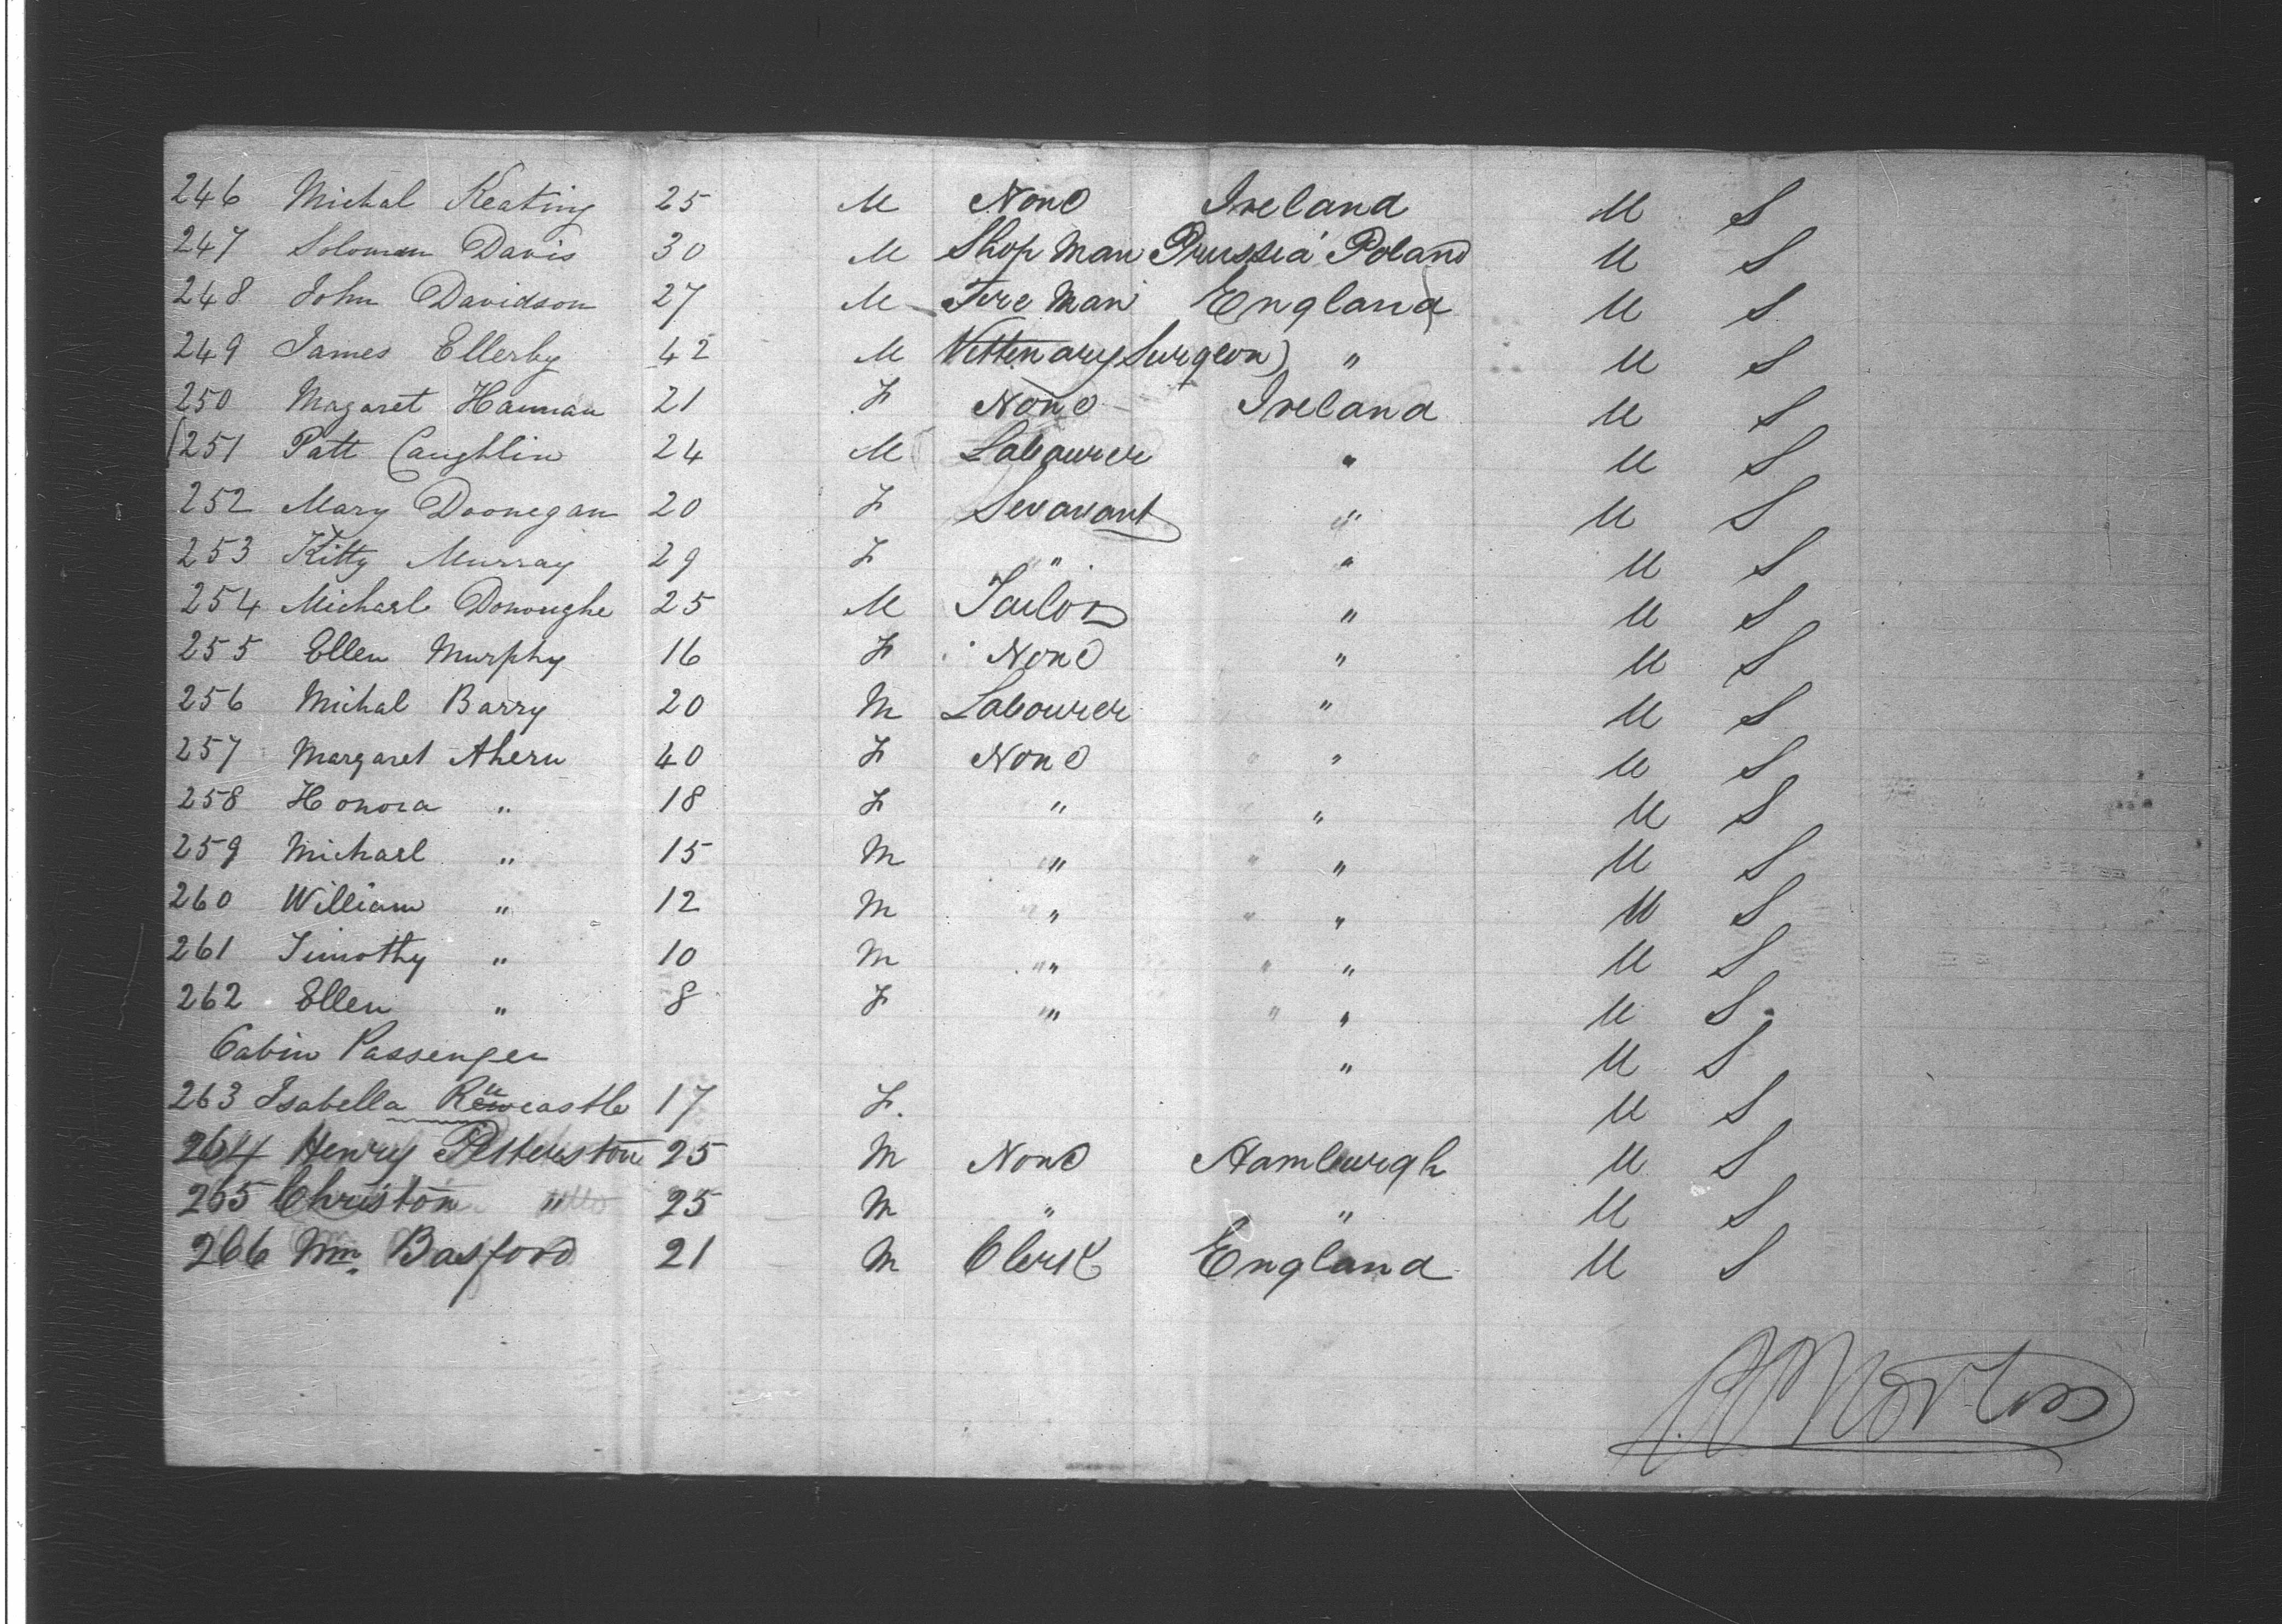 246 Michal Keating 25 M None Ireland U S
247 Soloman Davis 30 M Shop Man Prussia Poland U S
248 John Davidson 27 M Fire Man England U S
249 James Ellerby 42 M Vettenary Surgeon) " U S
250 Magaret Hannan 21 F None Ireland U S
251 Patt Caughlin 24 M Labourer " U S
252 Mary Doonegan 20 F Servant " U S
253 Kitty Murray 29 F " " U S
254 Michael Donoughe 25 M Tailor " U S
255 Ellen Murphy 16 F None " U S
256 Michal Barry 20 M Labourer " U S
257 Margaret Ahern 40 F None " U S
258 Honora " 18 F " " U S
259 Michael " 15 M " " U S
260 William " 12 M " " U S
261 Timothy " 10 M " " U S
262 Ellen " 8 F " " U S
Cabin Passenger " U S
263 Isabella 17 F. U S
264 Henry 25 M None Hamburgh U S
265 Christon " 25 M " " U S
266 Wm. Basford 21 M Clerk England U S
Norton